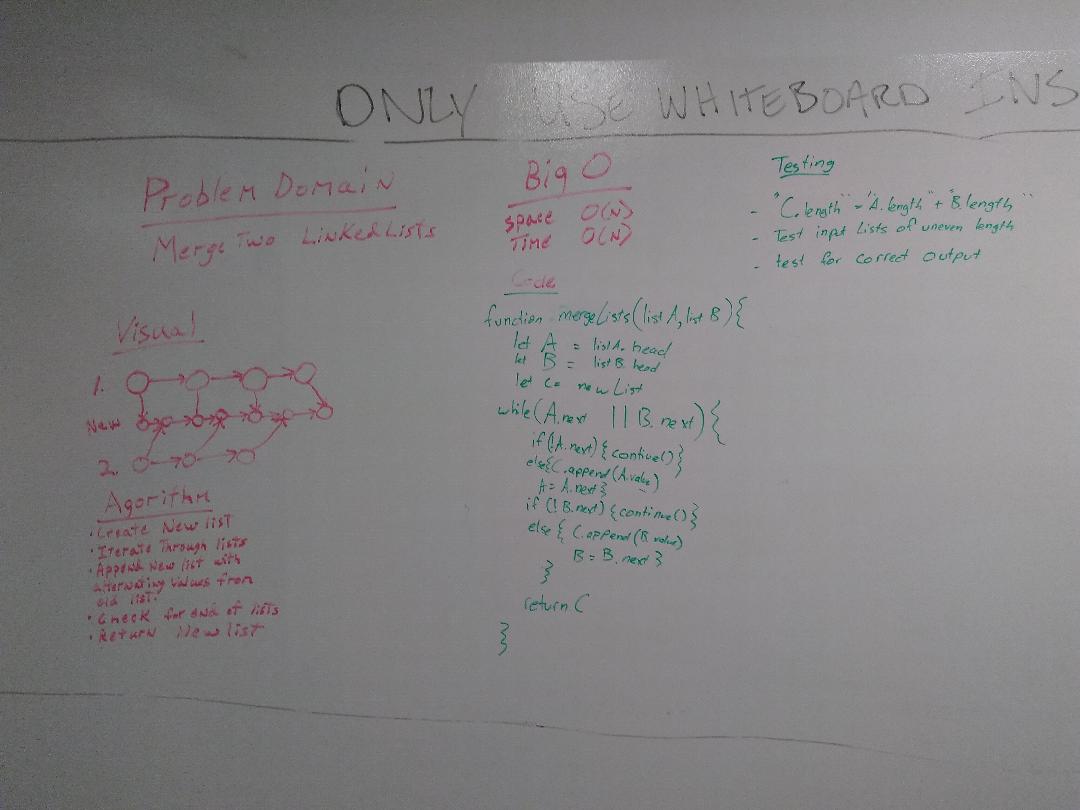 ONLY USE WHITEBOARD INS
Problem Domain
Merge Two Linked Lists
Visual
1.
New
2.
Agorithm
• Create New list
• Iterate Through lists
• Append New list with
alternating values from
old list.
• Check for end of lists
• Return New list
Big O
Space O(N)
Time O(N)
Code
function mergeLists(list A, list B){
let A = listA.head
let B = list B.head
let C = new List
while(A.next || B.next){
if(!A.next){continue()}
else{C.append(A.value)
A = A.next}
if(!B.next){continue()}
else{ C.append(B.value)
B = B.next}
}
return C
}
Testing
- "C.length" = "A.length" + "B.length"
- Test input Lists of uneven length
- test for correct output